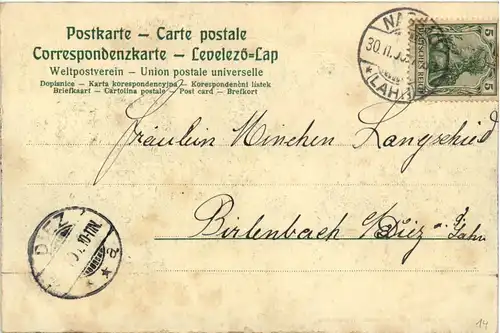 Postkarte – Carte postale
Correspondenzkarte – Levelező-Lap
Weltpostverein – Union postale universelle
Dopisnice – Karta korespondencyjna – Korespondenční lístek
Briefkaart – Cartolina postale – Post card – Brefkort
30.11.
(LAHN)
5 DEUTSCHES REICH 5
Fräulein Minchen Langschied
Birlenbach b/Diez a. Lahn
DIEZ
10-11N.
* * a
14